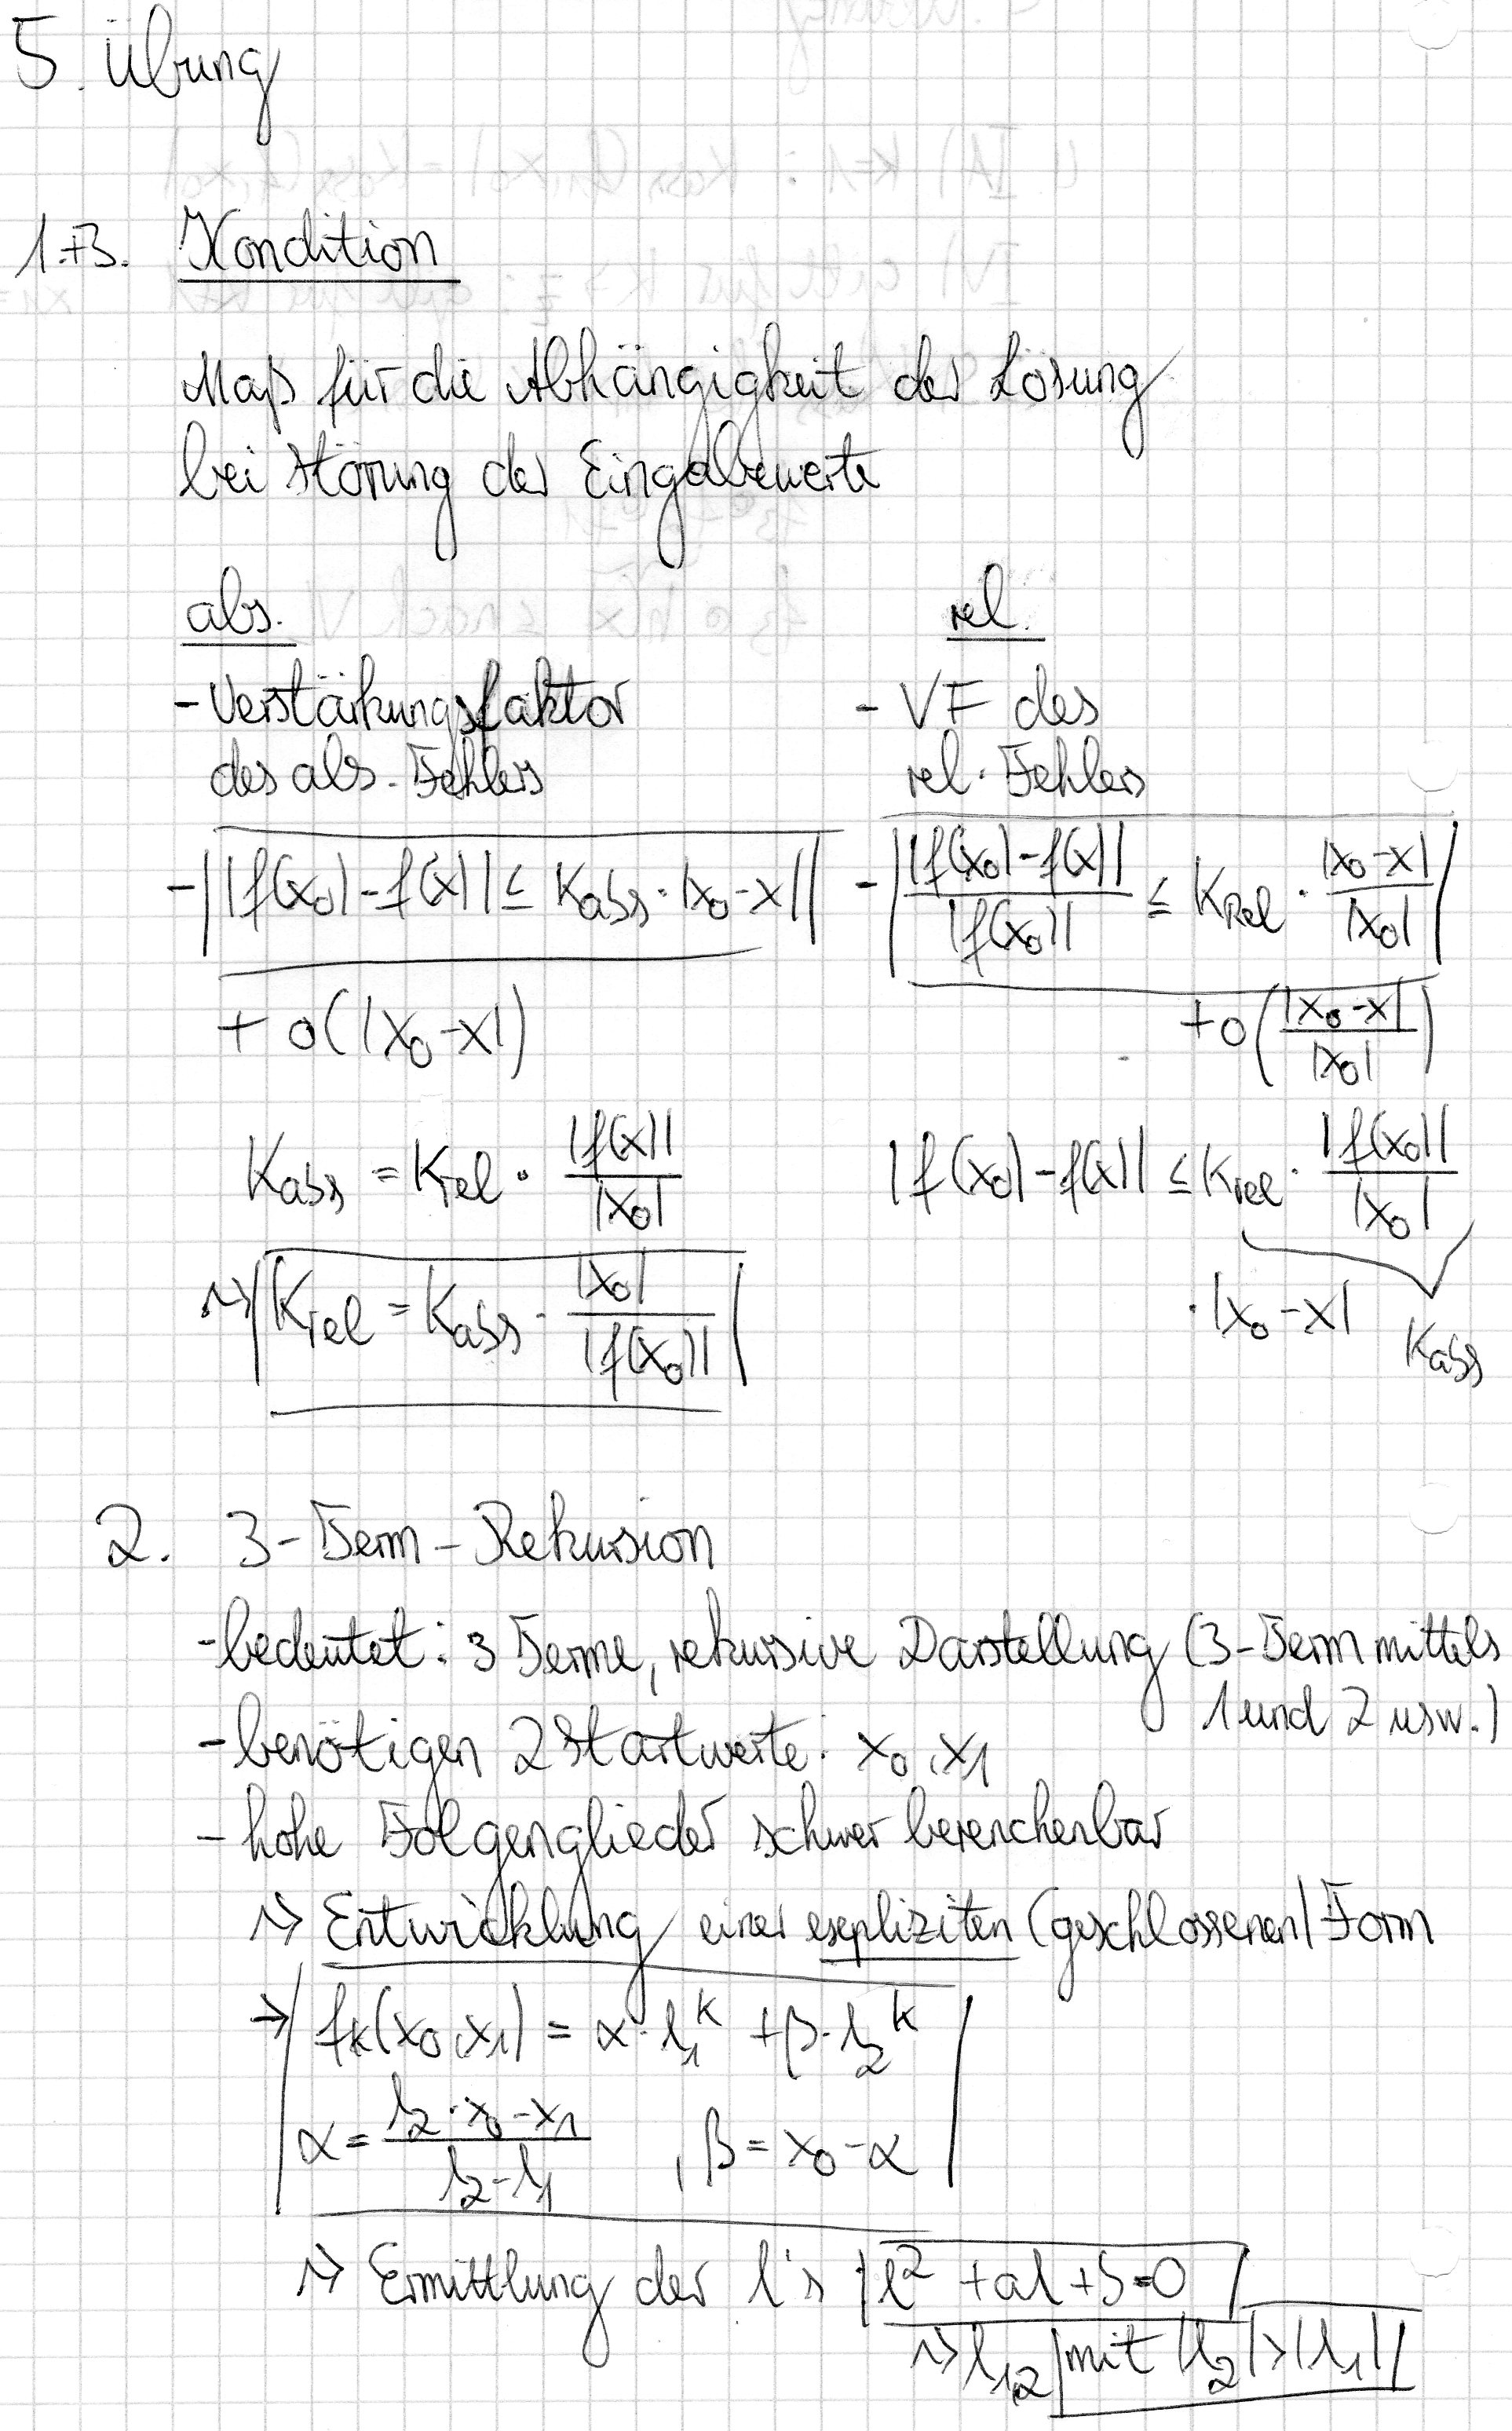 5. Übung
1.+3. Kondition
Maß für die Abhängigkeit der Lösung
bei Störung der Eingabewerte
abs.
- Verstärkungsfaktor
des abs. Fehlers
- |f(x₀) - f(x)| ≤ Kabs · |x₀ - x|
+ o(|x₀ - x|)
Kabs = Krel · |f(x)| / |x₀|
⇝ Krel = Kabs · |x₀| / |f(x₀)|
rel.
- VF des
rel. Fehlers
- |f(x₀) - f(x)| / |f(x₀)| ≤ KRel · |x₀ - x| / |x₀|
+ o(|x₀ - x| / |x₀|)
|f(x₀) - f(x)| ≤ Krel · |f(x₀)| / |x₀|
· |x₀ - x| Kabs
2. 3-Term-Rekursion
- bedeutet: 3 Terme, rekursive Darstellung (3-Term mittels
1 und 2 usw.)
- benötigen 2 Startwerte: x₀, x₁
- hohe Folgenglieder schwer berenchenbar
⇝ Entwicklung einer expliziten (geschlossenen) Form
→ fk(x₀, x₁) = α · λ₁ᵏ + β · λ₂ᵏ
α = (λ₂ · x₀ - x₁) / (λ₂ - λ₁) , β = x₀ - α
⇝ Ermittlung der λ's λ² + aλ + b = 0
⇝ λ₁,₂ mit |λ₂| > |λ₁|